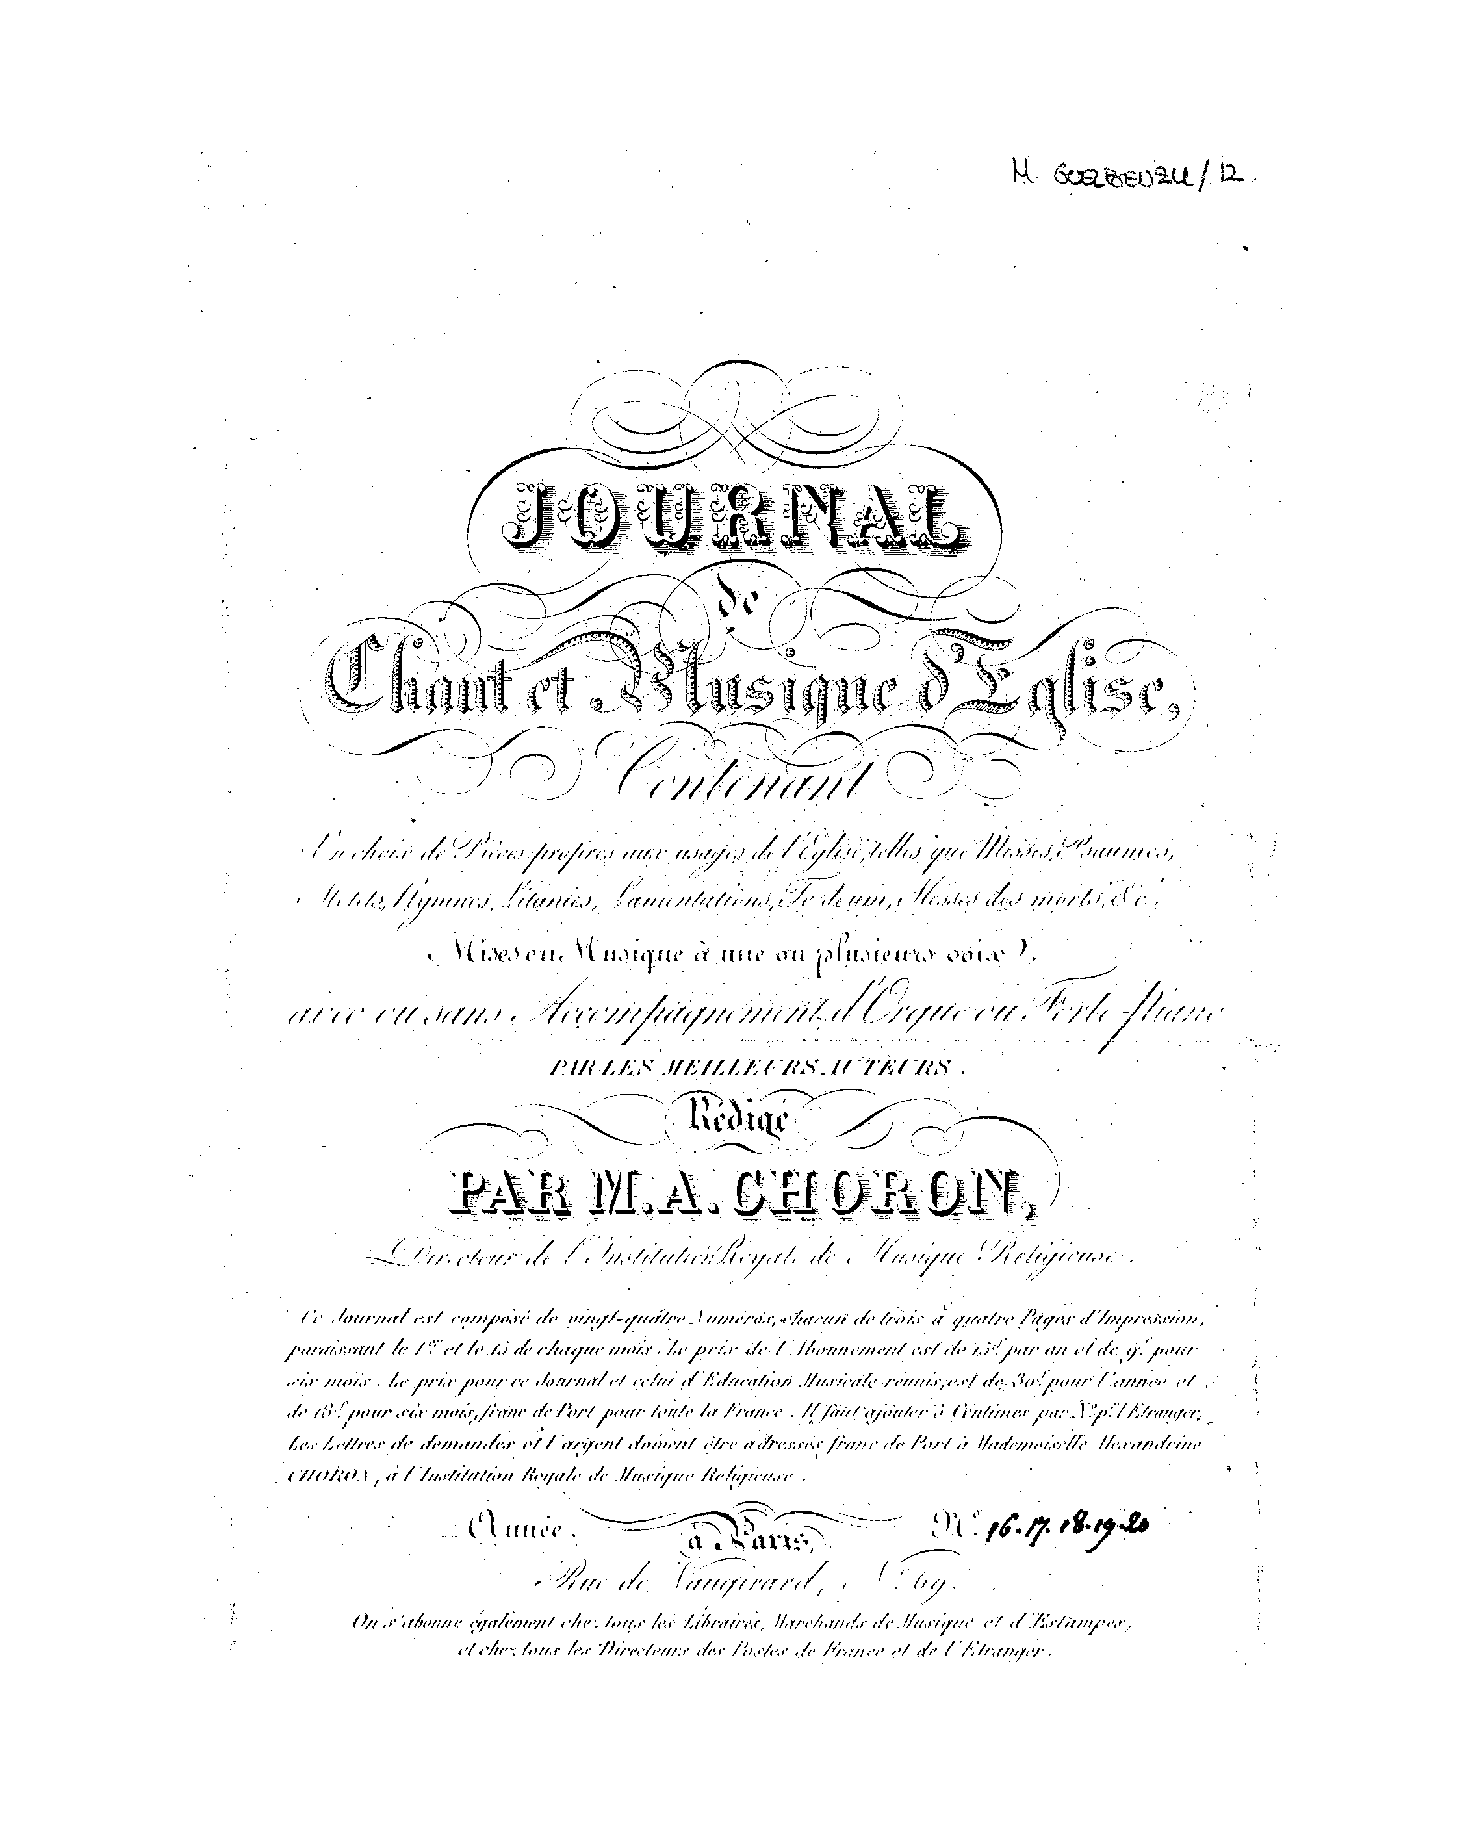 JOURNAL
de
Chant et Musique d'Eglise,
Contenant
Un choix de Pièces propres aux usages de l'Eglise, telles que Messes, Psaumes,
Motets, Hymnes, Litanies, Lamentations, Te deum, Messes des morts, &c.
Mises en Musique à une ou plusieurs voix
avec ou sans Accompagnement d'Orgue ou Forte-piano
PAR LES MEILLEURS AUTEURS.
Rédigé
PAR M. A. CHORON,
Directeur de l'Institution Royale de Musique Religieuse.
Ce Journal est composé de vingt-quatre Numéros, chacun de trois à quatre Pages d'Impression,
paraissant le 1er et le 15 de chaque mois. Le prix de l'Abonnement est de 15f par an et de 9f pour
six mois. Le prix pour ce Journal et celui d'Education Musicale réunis, est de 30f pour l'année et
de 18f pour six mois, franc de Port pour toute la France. Il faut ajouter 5 Centimes par No pr l'Etranger,
Les Lettres de demandes et l'argent doivent être adressés franc de Port à Mademoiselle Alexandrine
CHORON, à l'Institution Royale de Musique Religieuse.
Année. à Paris, No. 16.17.18.19.20
Rue de Vaugirard, No. 69.
On s'abonne également chez tous les Libraires, Marchands de Musique et d'Estampes,
et chez tous les Directeurs des Postes de France et de l'Etranger.